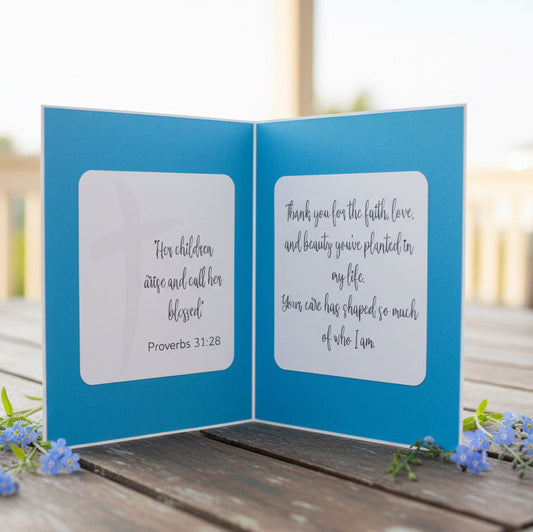 "Her children
arise and call her
blessed"
Proverbs 31:28
Thank you for the faith, love,
and beauty you've planted in
my life.
Your care has shaped so much
of who I am.